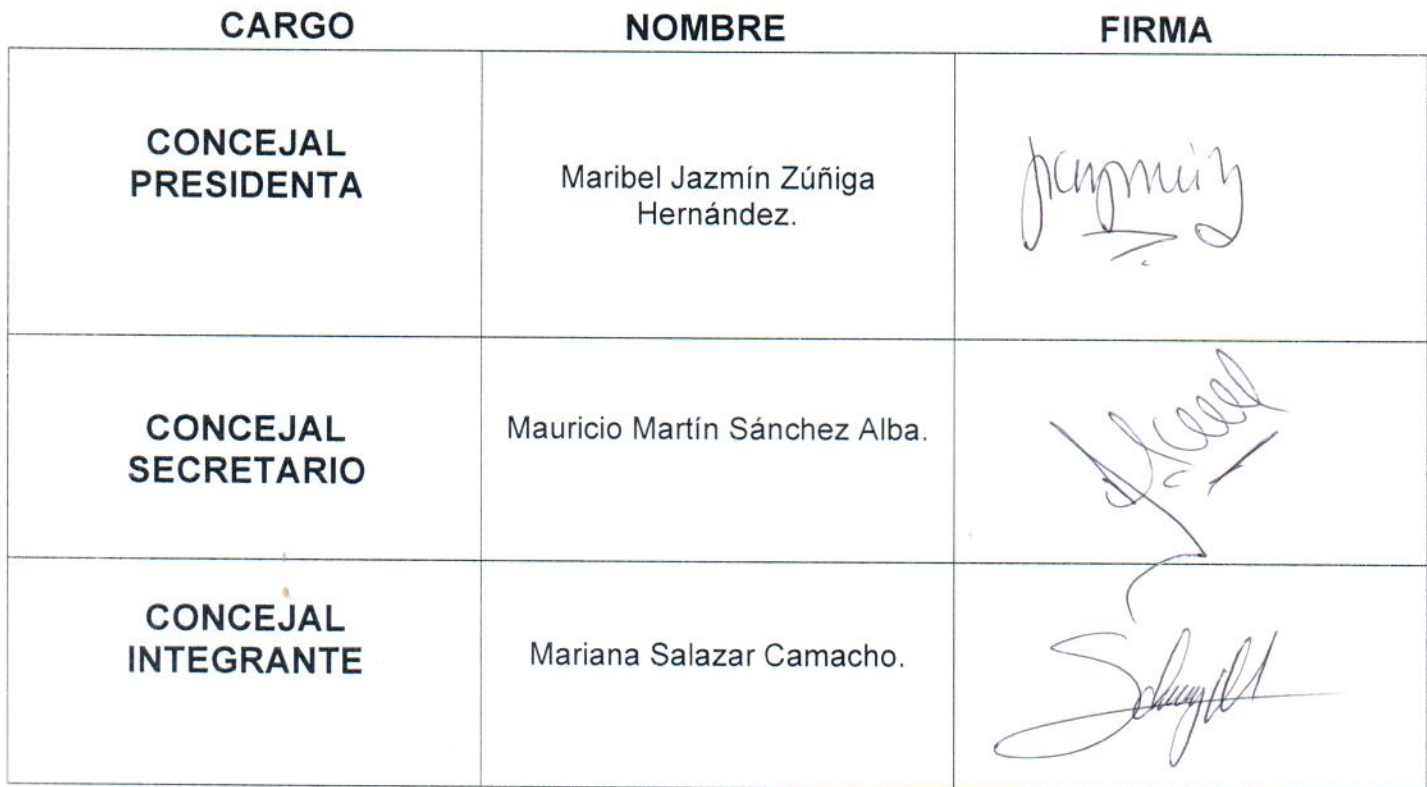 CARGO NOMBRE FIRMA
CONCEJAL
PRESIDENTA
Maribel Jazmín Zúñiga
Hernández.
CONCEJAL
SECRETARIO
Mauricio Martín Sánchez Alba.
CONCEJAL
INTEGRANTE
Mariana Salazar Camacho.